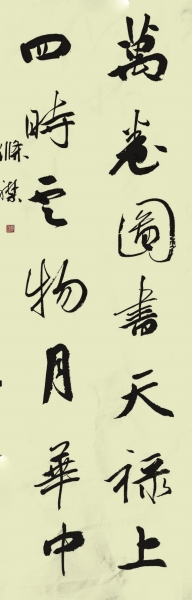 萬卷圖書天禄上
四時雲物月華中